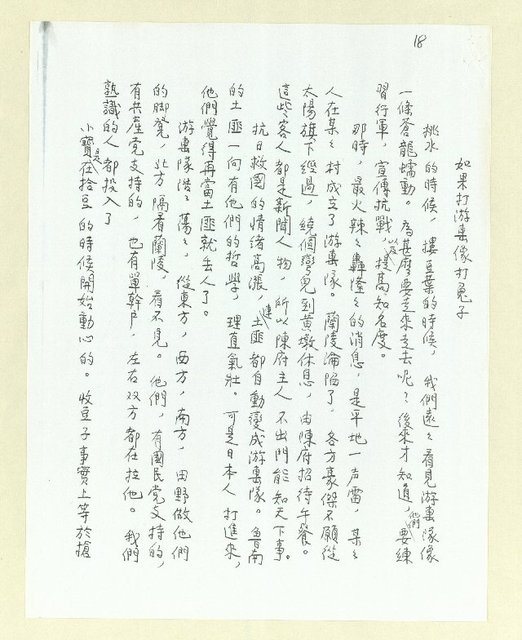 18
如果打游击像打兔子
挑水的時候，摟豆葉的時候，我們遠々看見游击隊像
一條蒼龍蠕動。為甚麼要走來走去呢？後來才知道，他們要練
習行軍，宣傳抗戰，以及提高知名度。
那時，最火辣々轟隆々的消息，是平地一声雷，某々
人在某々村成立了游击隊。蘭陵淪陷了，各方豪傑不願從
太陽旗下經過，繞個彎兒到黃墩休息，由陳府招待午餐。
這些客人都是新聞人物，所以陳府主人不出門能知天下事。
抗日救國的情緒高漲，連土匪都自動變成游击隊。魯南
的土匪一向有他們的哲學，理直氣壯。可是日本人打進來，
他們覺得再當土匪就丢人了。
游击隊浩々蕩々，從東方，西方，南方，田野做他們
的腳凳，北方隔着蘭陵，看不見。他們，有國民党支持的，
有共產党支持的，也有單幹户，左右双方都在拉他。我們
熟識的人都投入了
小寶是在拾豆的時候開始動心的。收豆子事實上等於搶